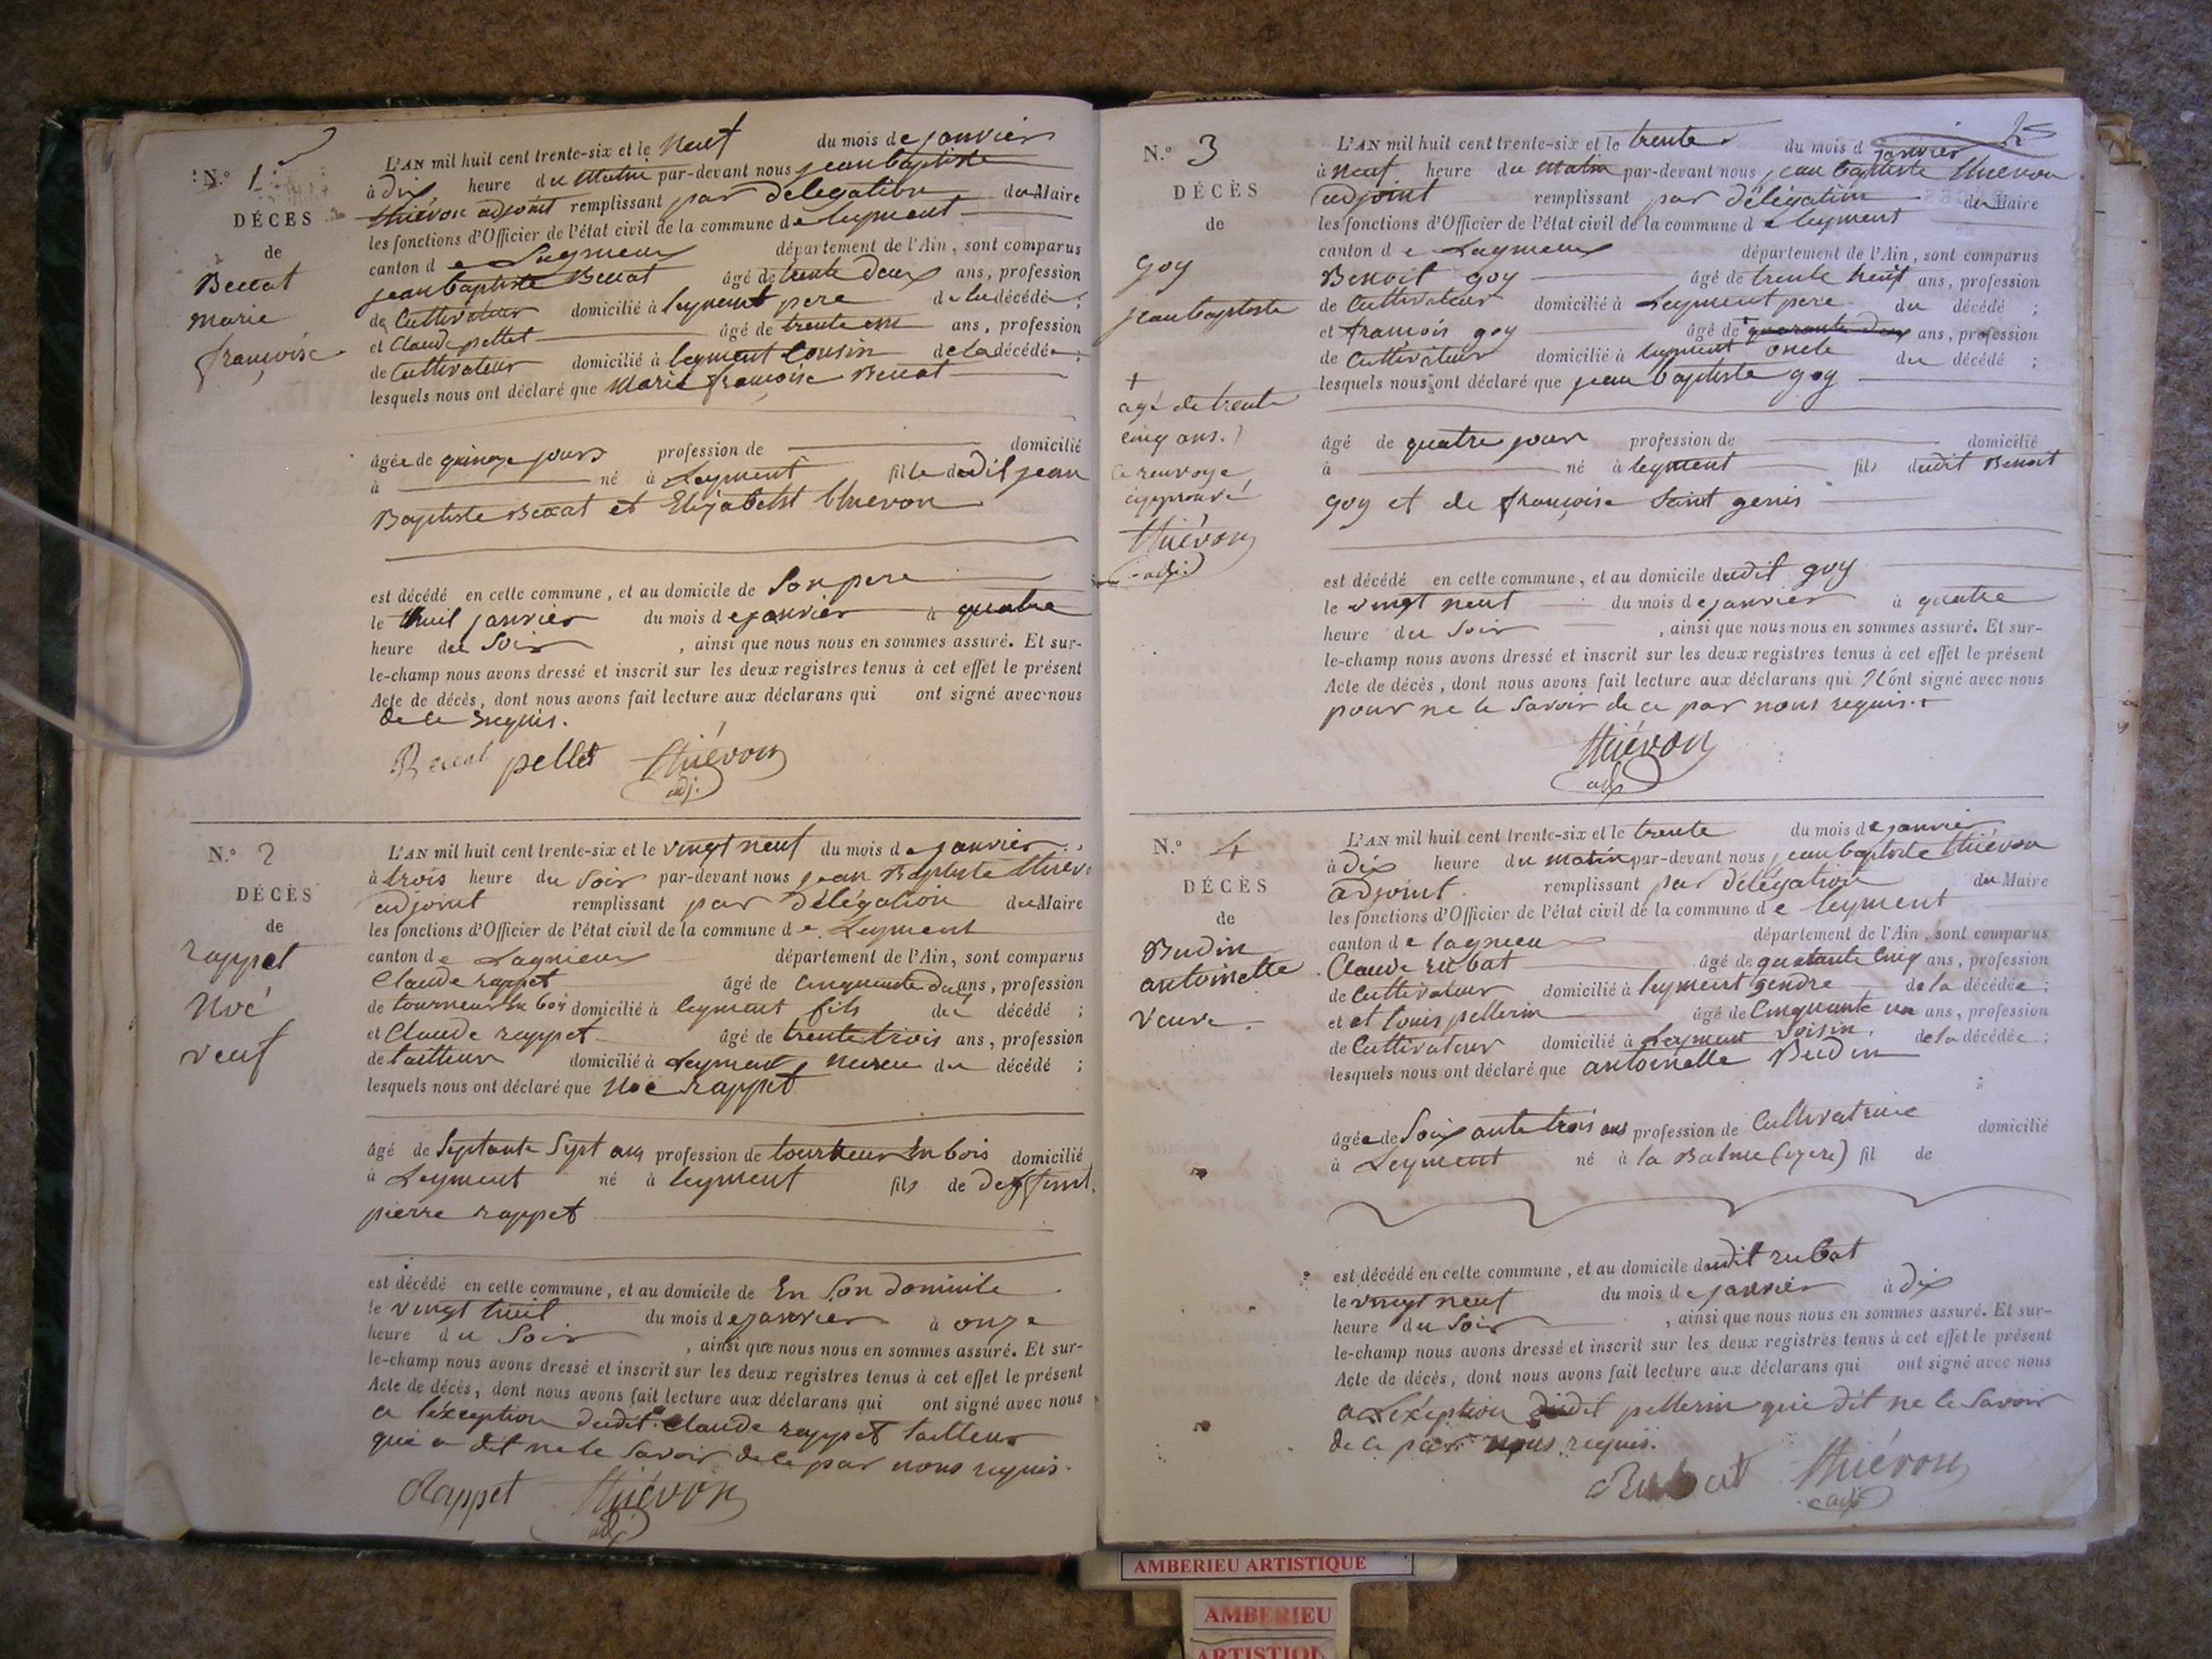 N.° 1
DÉCÈS
de
Beccat
marie
françoise
L'AN mil huit cent trente-six et le neuf du mois de janvier
à dix heure du matin par-devant nous jean baptiste
thiévon adjoint remplissant par délégation du Maire
les fonctions d'Officier de l'état civil de la commune de leyment
canton de Lagnieux département de l'Ain, sont comparus
jean baptiste Beccat âgé de trente deux ans, profession
de Cultivateur domicilié à leyment pere de la décédée;
et Claude pellet âgé de trente ans, profession
de Cultivateur domicilié à leyment Cousin de la décédée;
lesquels nous ont déclaré que Marie françoise Beccat
âgée de quinze jours profession de domicilié
à né à Leyment fille dudit jean
Baptiste Beccat et Elizabeth thievon
est décédé en cette commune, et au domicile de Son pere
le huit janvier du mois de janvier à quatre
heure du Soir, ainsi que nous nous en sommes assuré. Et sur-
le-champ nous avons dressé et inscrit sur les deux registres tenus à cet effet le présent
Acte de décès, dont nous avons fait lecture aux déclarans qui ont signé avec nous
de ce requis.
Beccat pellet thiévon
adj.
N.° 2
DÉCÈS
de
rappet
Noé
veuf
L'AN mil huit cent trente-six et le vingt neuf du mois de janvier
à trois heure du Soir par-devant nous jean Baptiste thiév
adjoint remplissant par délégation du Maire
les fonctions d'Officier de l'état civil de la commune de Leyment
canton de Lagnieux département de l'Ain, sont comparus
Claude rappet âgé de Cinquante deux ans, profession
de tourneur En bois domicilié à leyment fils du décédé;
et Claude rappet âgé de trente trois ans, profession
de tailleur domicilié à Leyment neveu du décédé;
lesquels nous ont déclaré que Noé rappet
âgé de Septante Sept ans profession de tourneur En bois domicilié
à Leyment né à leyment fils de deffunt
pierre rappet
est décédé en cette commune, et au domicile de En Son domicile
le vingt huit du mois de janvier à onze
heure du Soir, ainsi que nous nous en sommes assuré. Et sur-
le-champ nous avons dressé et inscrit sur les deux registres tenus à cet effet le présent
Acte de décès, dont nous avons fait lecture aux déclarans qui ont signé avec nous
a léxception dudit Claude rappet tailleur
qui a dit ne le Savoir de ce par nous requis.
Rappet thiévon
adj
N.° 3
DÉCÈS
de
goy
jean baptiste
+
agé de trente
cinq ans.
Ce renvoye
approuvé
thiévon
adj.
L'AN mil huit cent trente-six et le trente du mois d janvier
à neuf heure du matin par-devant nous jean baptiste thievon
adjoint remplissant par délégation du Maire
les fonctions d'Officier de l'état civil de la commune de leyment
canton de Lagnieux département de l'Ain, sont comparus
Benoit goy âgé de trente neuf ans, profession
de Cultivateur domicilié à Leyment pere du décédé;
et françois goy âgé de quarante deux ans, profession
de Cultivateur domicilié à leyment oncle du décédé;
lesquels nous ont déclaré que jean baptiste goy
âgé de quatre jour profession de domicilié
à né à leyment fils dudit Benoit
goy et de françoise Saint genis
est décédé en cette commune, et au domicile dudit goy
le vingt neuf du mois de janvier à quatre
heure du Soir, ainsi que nous nous en sommes assuré. Et sur-
le-champ nous avons dressé et inscrit sur les deux registres tenus à cet effet le présent
Acte de décès, dont nous avons fait lecture aux déclarans qui N'ont signé avec nous
pour ne le Savoir de ce par nous requis. +
thiévon
adj
N.° 4
DÉCÈS
de
Budin
antoinette
veuve.
L'AN mil huit cent trente-six et le trente du mois de janvier
à dix heure du matin par-devant nous jean baptiste thiévon
adjoint remplissant par délégation du Maire
les fonctions d'Officier de l'état civil de la commune de leyment
canton de lagnieu département de l'Ain, sont comparus
Claude rubat âgé de quarante Cinq ans, profession
de Cultivateur domicilié à leyment gendre de la décédée;
et et louis pellerin âgé de Cinquante un ans, profession
de Cultivateur domicilié à Leyment voisin. de la décédée;
lesquels nous ont déclaré que antoinette Budin
âgée de Soixante trois ans profession de Cultivatrice domicilié
à Leyment né à la Balme (izere) fil de
est décédé en cette commune, et au domicile dudit rubat
le vingt neuf du mois de janvier à dix
heure du Soir, ainsi que nous nous en sommes assuré. Et sur-
le-champ nous avons dressé et inscrit sur les deux registres tenus à cet effet le présent
Acte de décès, dont nous avons fait lecture aux déclarans qui ont signé avec nous
a Léxéption dudit pellerin qui dit ne le Savoir
de ce par nous requis.
Rubat thiévon
adj
AMBERIEU ARTISTIQUE
AMBERIEU